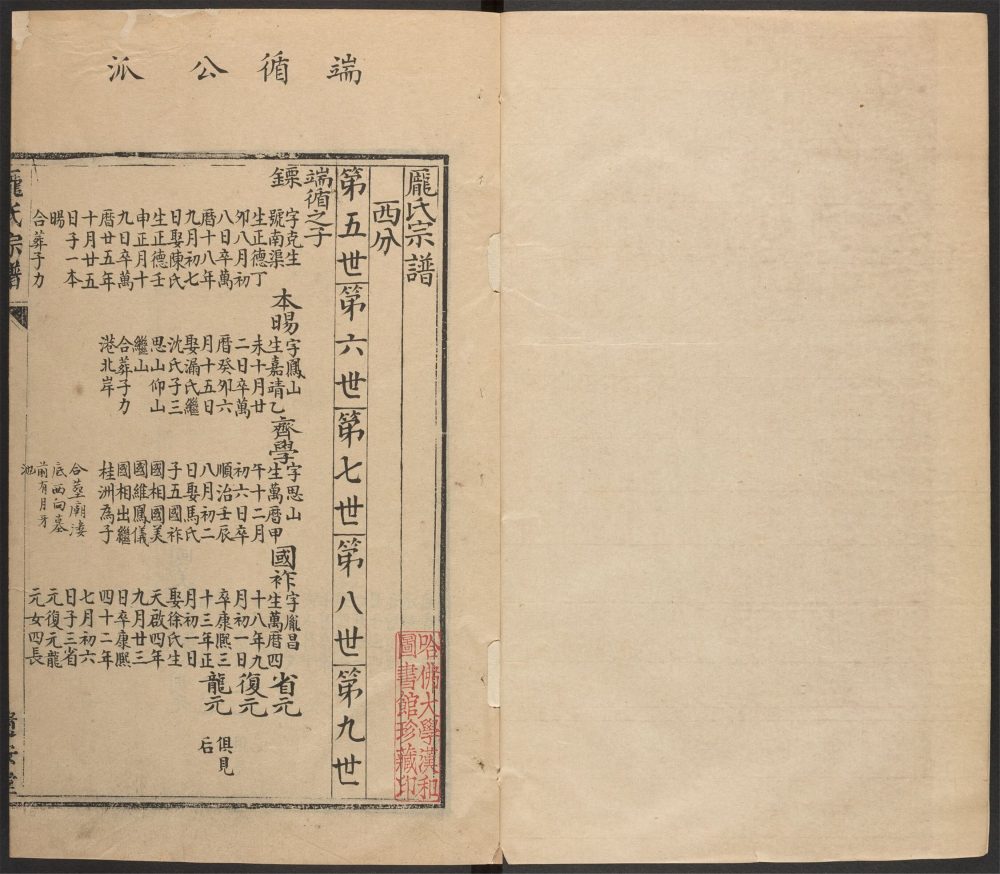 端循公派
龐氏宗譜
西分
第五世第六世第七世第八世第九世
端循之子
鏢
字克生
號南渠
生正德丁
卯八月初
八日卒萬
曆十八年
九月初七
日娶陳氏
生正德壬
申正月十
九日卒萬
曆廿五年
十月廿五
日子一本
暘
合葬子力
本暘
字鳳山
生嘉靖乙
未十月廿
二日卒萬
曆癸卯六
月十五日
娶漏氏繼
沈氏子三
思山仰山
繼山
合葬子力
港北岸
齊學
字思山
生萬曆甲
午十二月
初六日卒
順治壬辰
八月初二
日娶馬氏
子五國祚
國相國美
國維鳳儀
國相出繼
桂洲為子
合塟廟漊
底西向墓
前有月牙
池
國祚
字胤昌
生萬曆四
十八年九
月初一日
卒康熙三
十三年正
月初一日
娶徐氏生
天啟四年
九月廿三
日卒康熙
四十二年
七月初六
日子三省
元復元龍
元女四長
省元
復元
龍元
俱見
后
龐氏宗譜
哈佛大學漢和
圖書館珍藏印